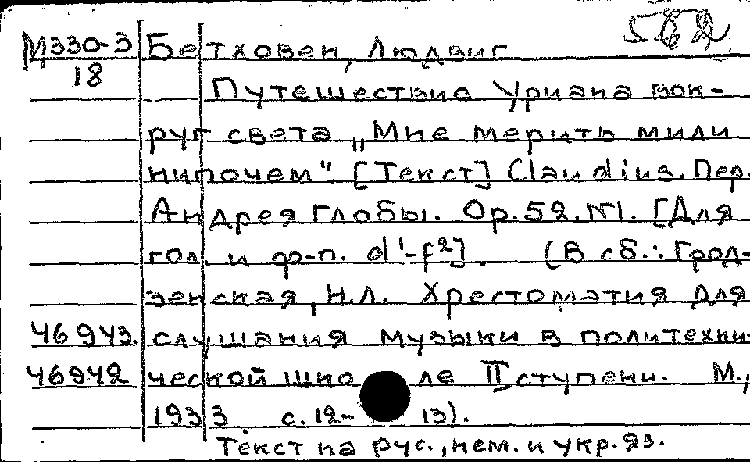 582
М330-3 Бетховен, Людвиг
18
Путешествие Уриана вок-
руг света „Мне мерить мили
нипочем" [Текст] Claudius. Пер.
Андрея Глобы. Ор. 52. №1. [Для
гол. и ф-п. d¹-f²]. (В сб.: Грод-
зенская, Н.Л. Хрестоматия для
46943. слушания музыки в политехни-
46942 ческой школе II ступени. М.,
1933 с. 12-13).
Текст на рус., нем. и укр. яз.